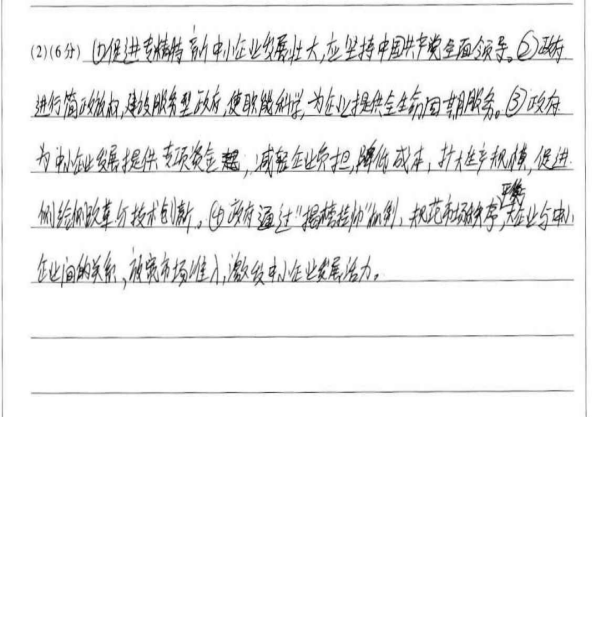 (2)(6分) ①促进专精特新中小企业发展壮大,应坚持中国共产党全面领导。②政府
进行简政放权,建设服务型政府,使职能科学,为企业提供全生命周期服务。③政府
为中小企业发展提供专项资金,减轻企业负担,降低成本,扩大生产规模,促进
供给侧改革与技术创新。④政府通过“揭榜挂帅”机制,规范市场秩序,平衡大企业与中小
企业间的关系,放宽市场准入,激发中小企业发展活力。